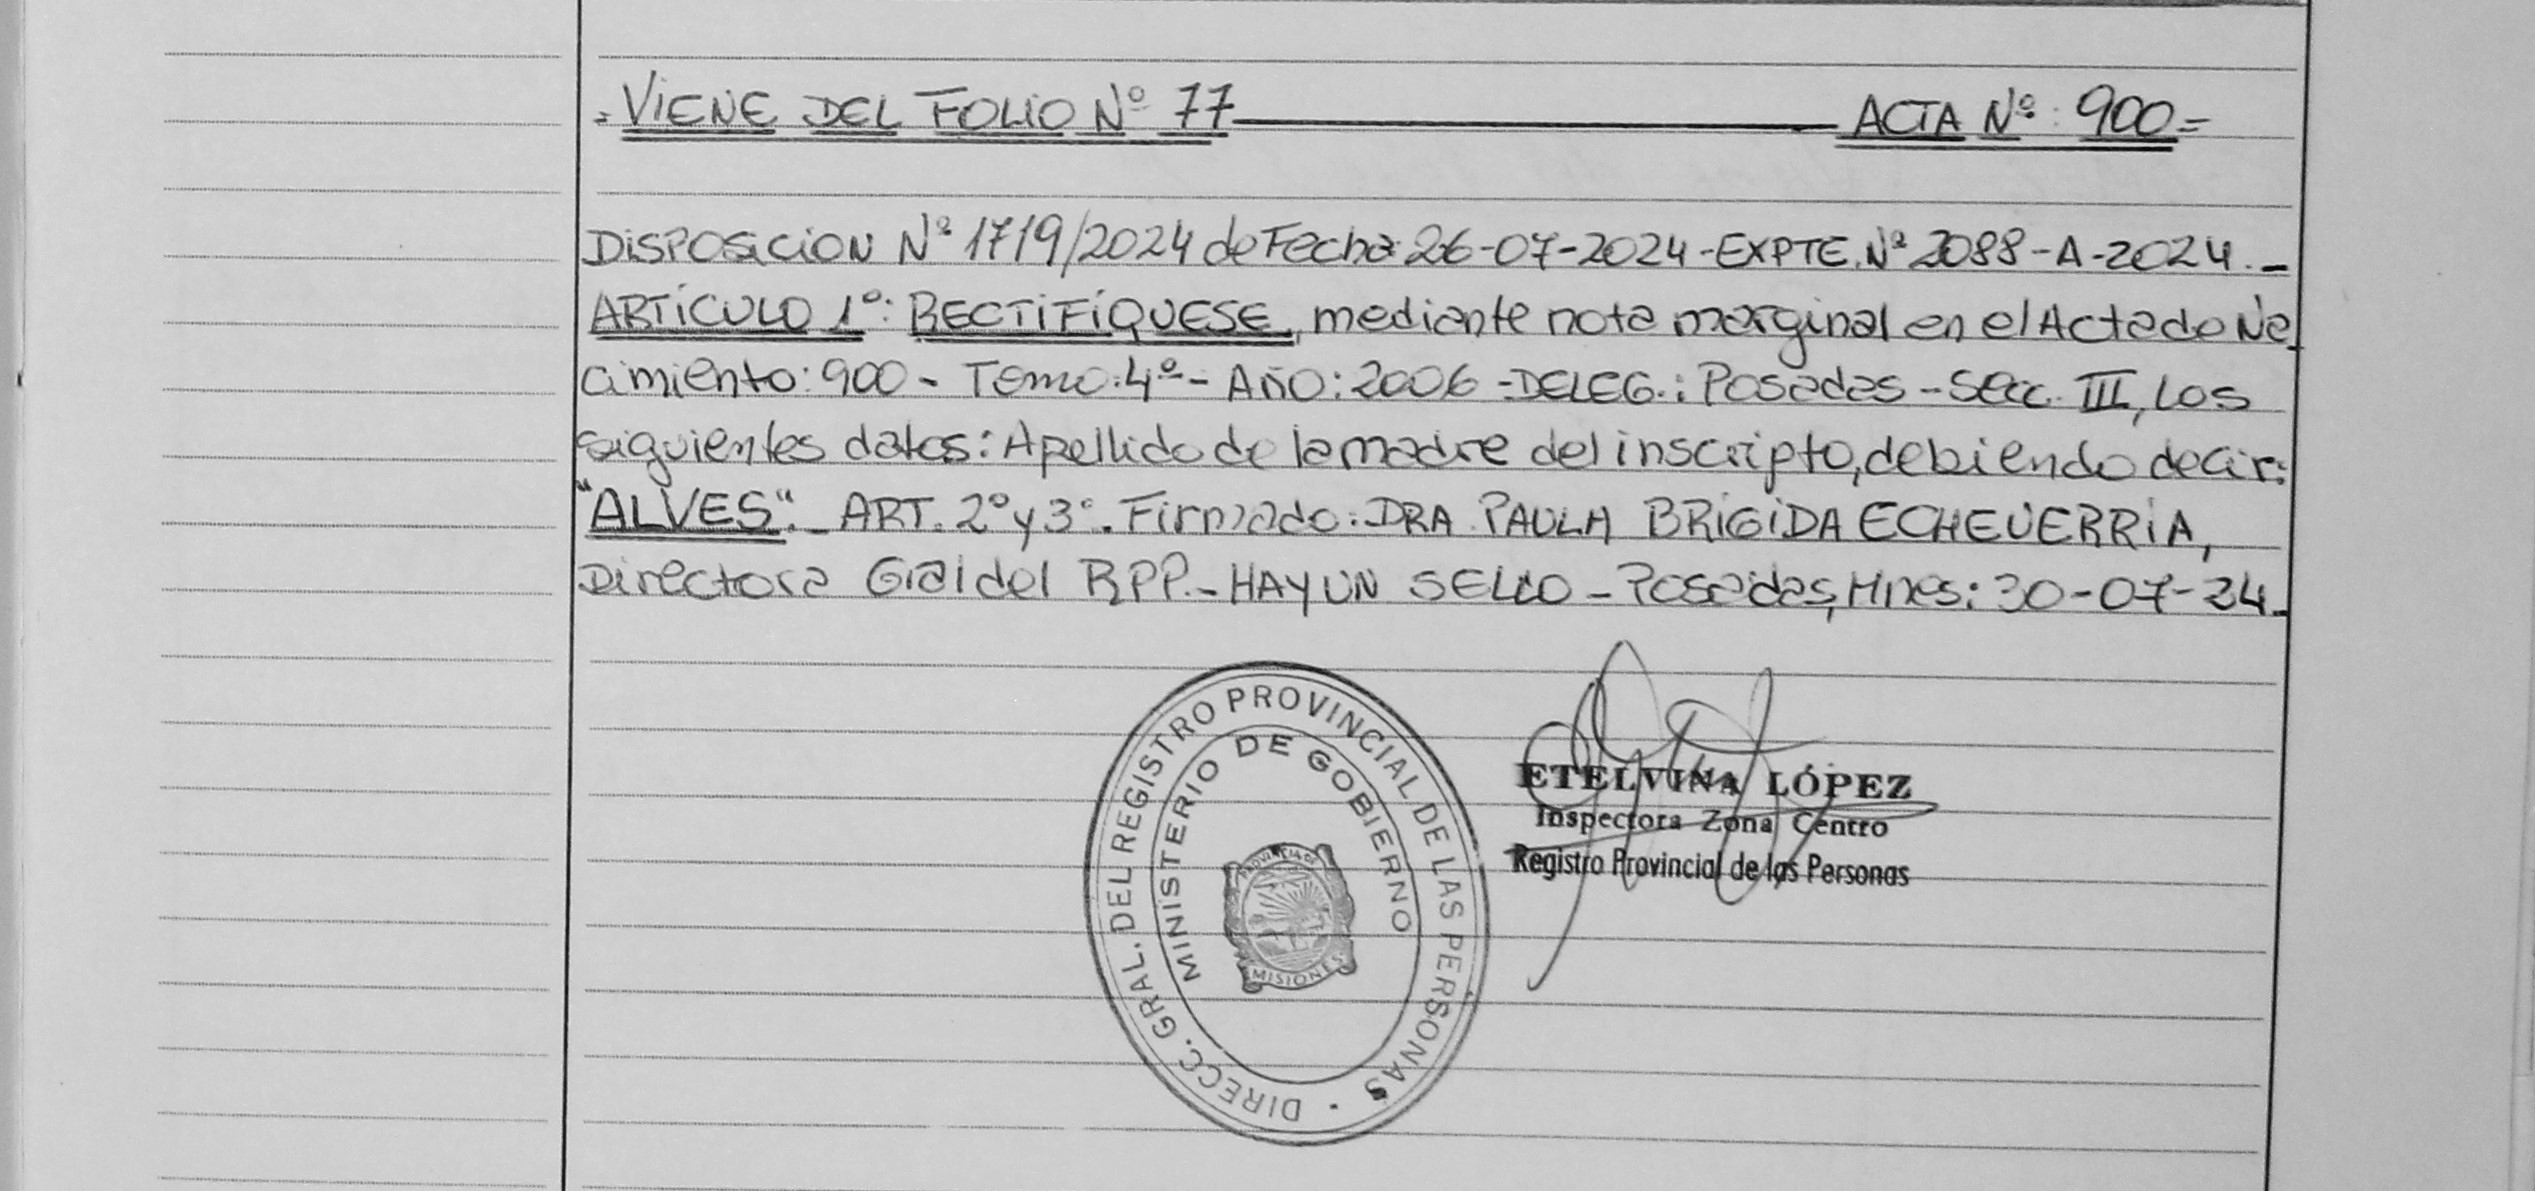 - VIENE DEL FOLIO Nº 77 ACTA Nº: 900=
DISPOSICION Nº 1719/2024 de Fecha: 26-07-2024 - EXPTE. Nº 2088-A-2024.-
ARTÍCULO 1º: RECTIFÍQUESE, mediante nota marginal en el Acta de Na
cimiento: 900 - Tomo: 4º - AÑO: 2006 - DELEG.: Posadas - Secc. III, Los
siguientes datos: Apellido de la madre del inscripto, debiendo decir:
"ALVES". - ART. 2º y 3º. Firmado: DRA. PAULA BRIGIDA ECHEVERRIA,
Directora Gral del RPP. - HAY UN SELLO - Posadas, Mnes: 30-07-24.
DIRECC. GRAL. DEL REGISTRO PROVINCIAL DE LAS PERSONAS
MINISTERIO DE GOBIERNO
PROVINCIA DE
MISIONES
ETELVINA LÓPEZ
Inspectora Zona Centro
Registro Provincial de las Personas